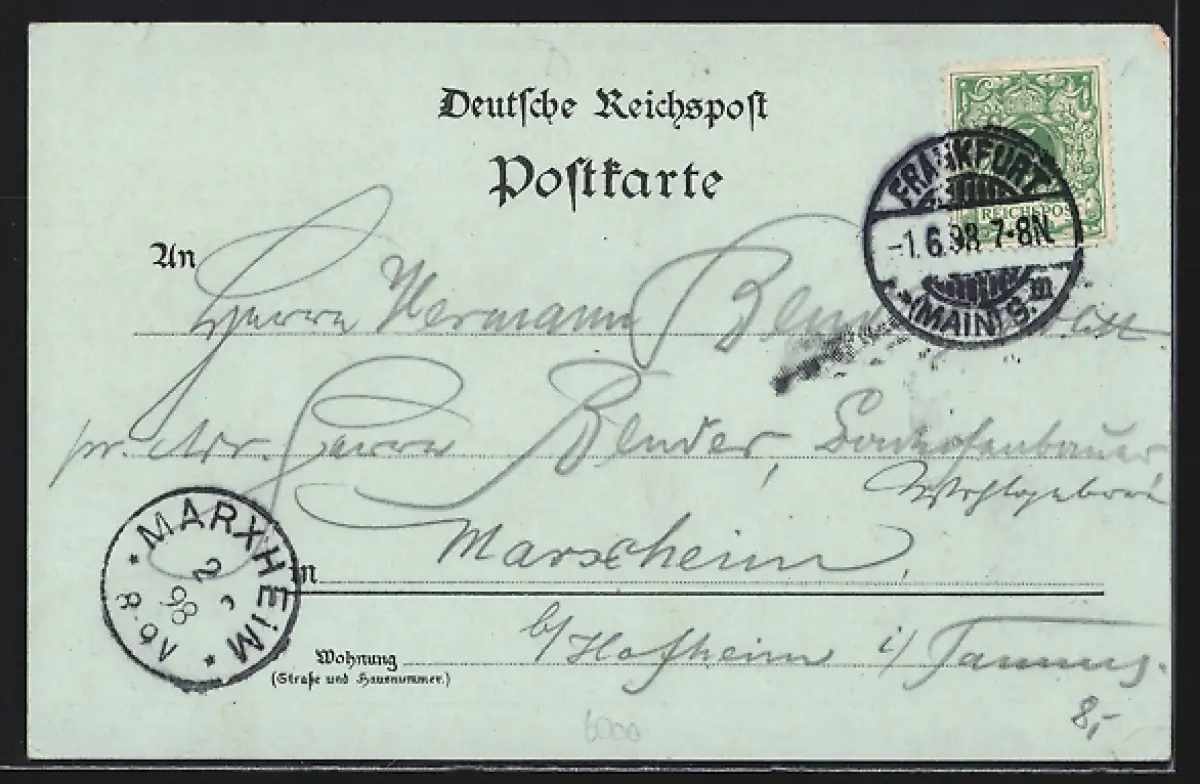 Deutsche Reichspost
Postkarte
REICHSPOST
FRANKFURT
-1.6.98 7-8N
(MAIN) 9. m
An
Herrn Hermann
pr. Adr. Herrn Bender,
Wohlgeboren
Marxheim,
in
MARXHEIM
2 6 98
b/ Hofheim i/ Taunus.
Wohnung
(Straße und Hausnummer.)
8,-
6000